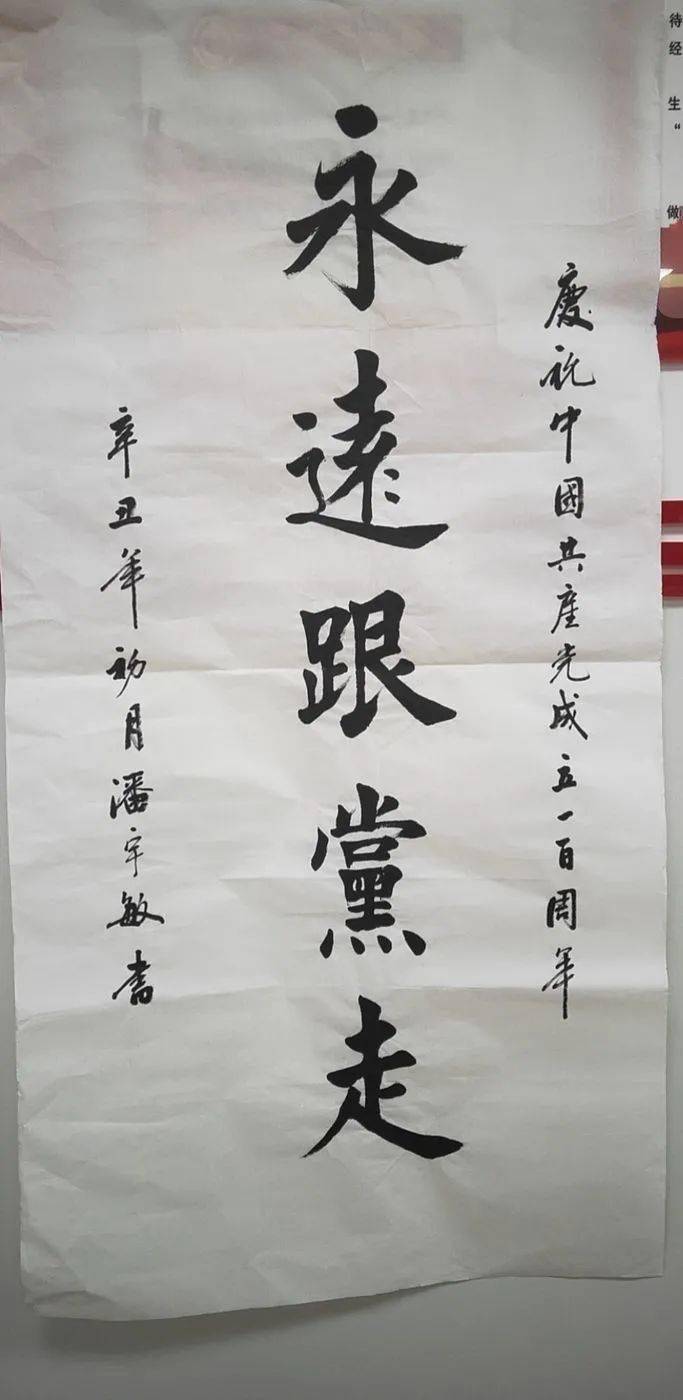 慶祝中國共産党成立一百周年
永遠跟黨走
辛丑年初月潘宇敏書
待
经
生“
做